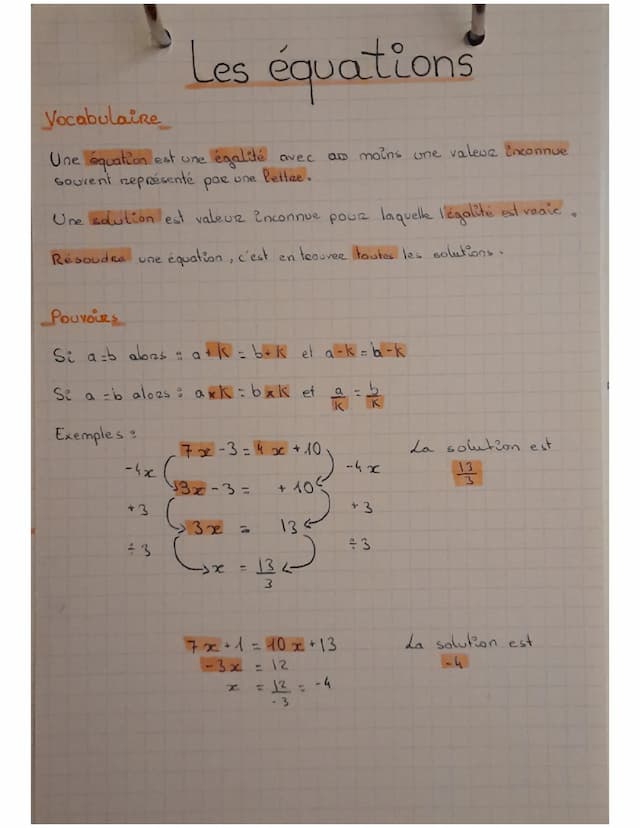 Les équations
Vocabulaire
Une équation est une égalité avec au moins une valeur inconnue
souvent représenté par une lettre.
Une solution est valeur inconnue pour laquelle l'égalité est vraie.
Résoudre une équation, c'est en trouver toutes les solutions.
Pouvoirs
Si a=b alors : a+k = b+k et a-k = b-k
Si a=b alors : a×k = b×k et a/k = b/k
Exemples :
7x - 3 = 4x + 10
La solution est
13/3
-4x
-4x
3x - 3 = + 10
+3
+3
3x = 13
÷3
÷3
x = 13/3
7x + 1 = 10x + 13
La solution est
-4
-3x = 12
x = 12/-3 = -4